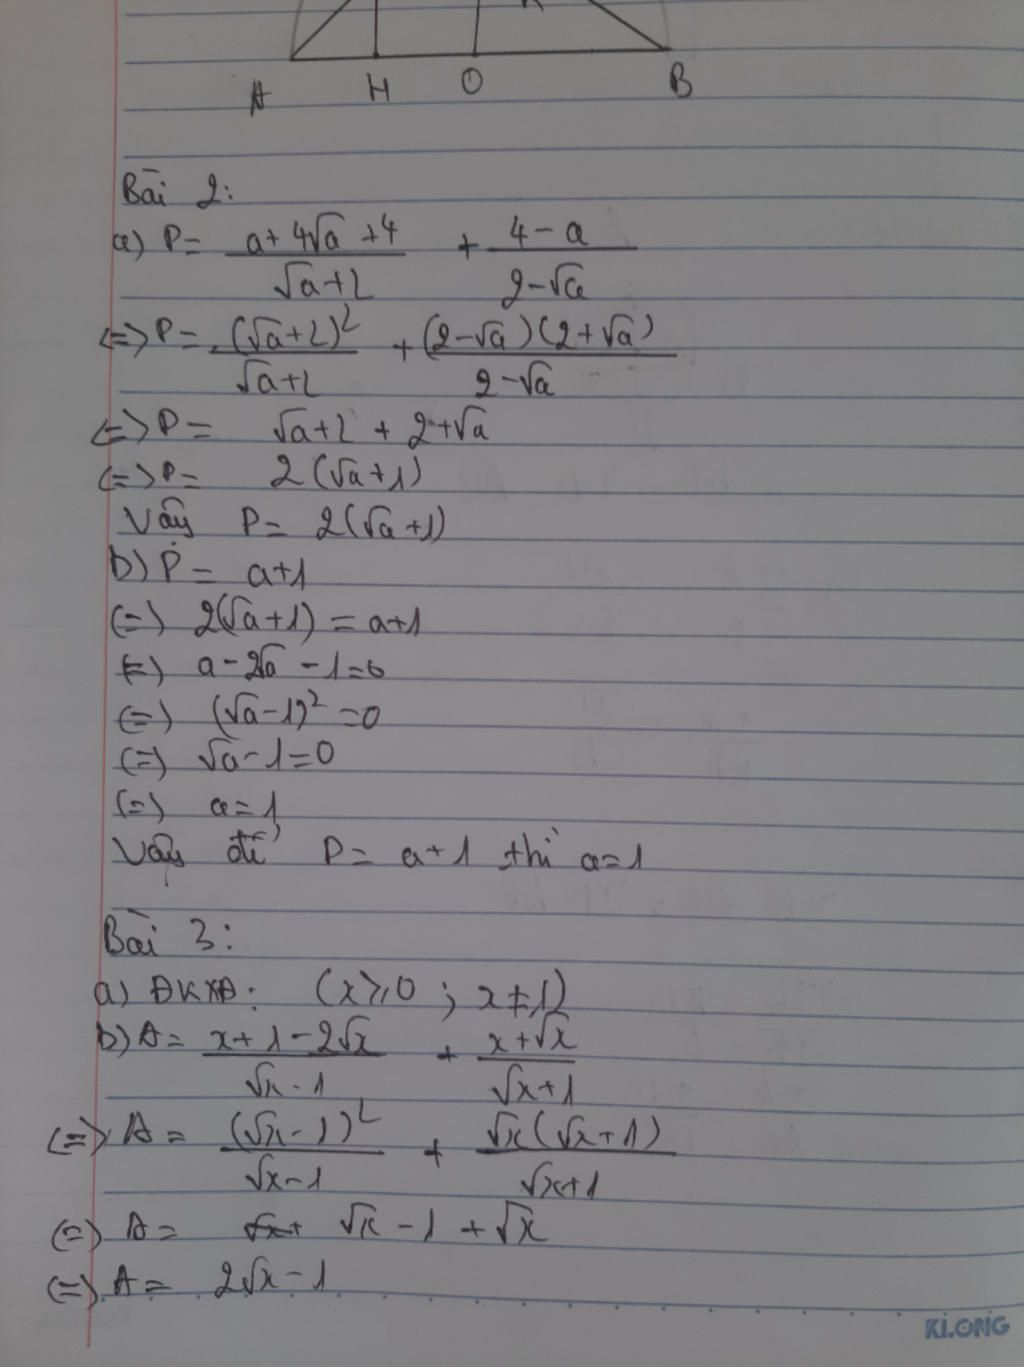 A H O B
Bài 2:
a) P = (a + 4√a + 4)/(√a + 2) + (4 - a)/(2 - √a)
<=> P = (√a + 2)²/(√a + 2) + (2 - √a)(2 + √a)/(2 - √a)
<=> P = √a + 2 + 2 + √a
<=> P = 2(√a + 1)
Vậy P = 2(√a + 1)
b) P = a + 1
(=) 2(√a + 1) = a + 1
(=) a - 2√a - 1 = 0
(=) (√a - 1)² = 0
(=) √a - 1 = 0
(=) a = 1
Vậy để P = a + 1 thì a = 1
Bài 3:
a) ĐKXĐ: (x ≥ 0 ; x ≠ 1)
b) A = (x + 1 - 2√x)/(√x - 1) + (x + √x)/(√x + 1)
<=> A = (√x - 1)²/(√x - 1) + √x(√x + 1)/(√x + 1)
(=) A = √x - 1 + √x
(=) A = 2√x - 1
KI.ONG